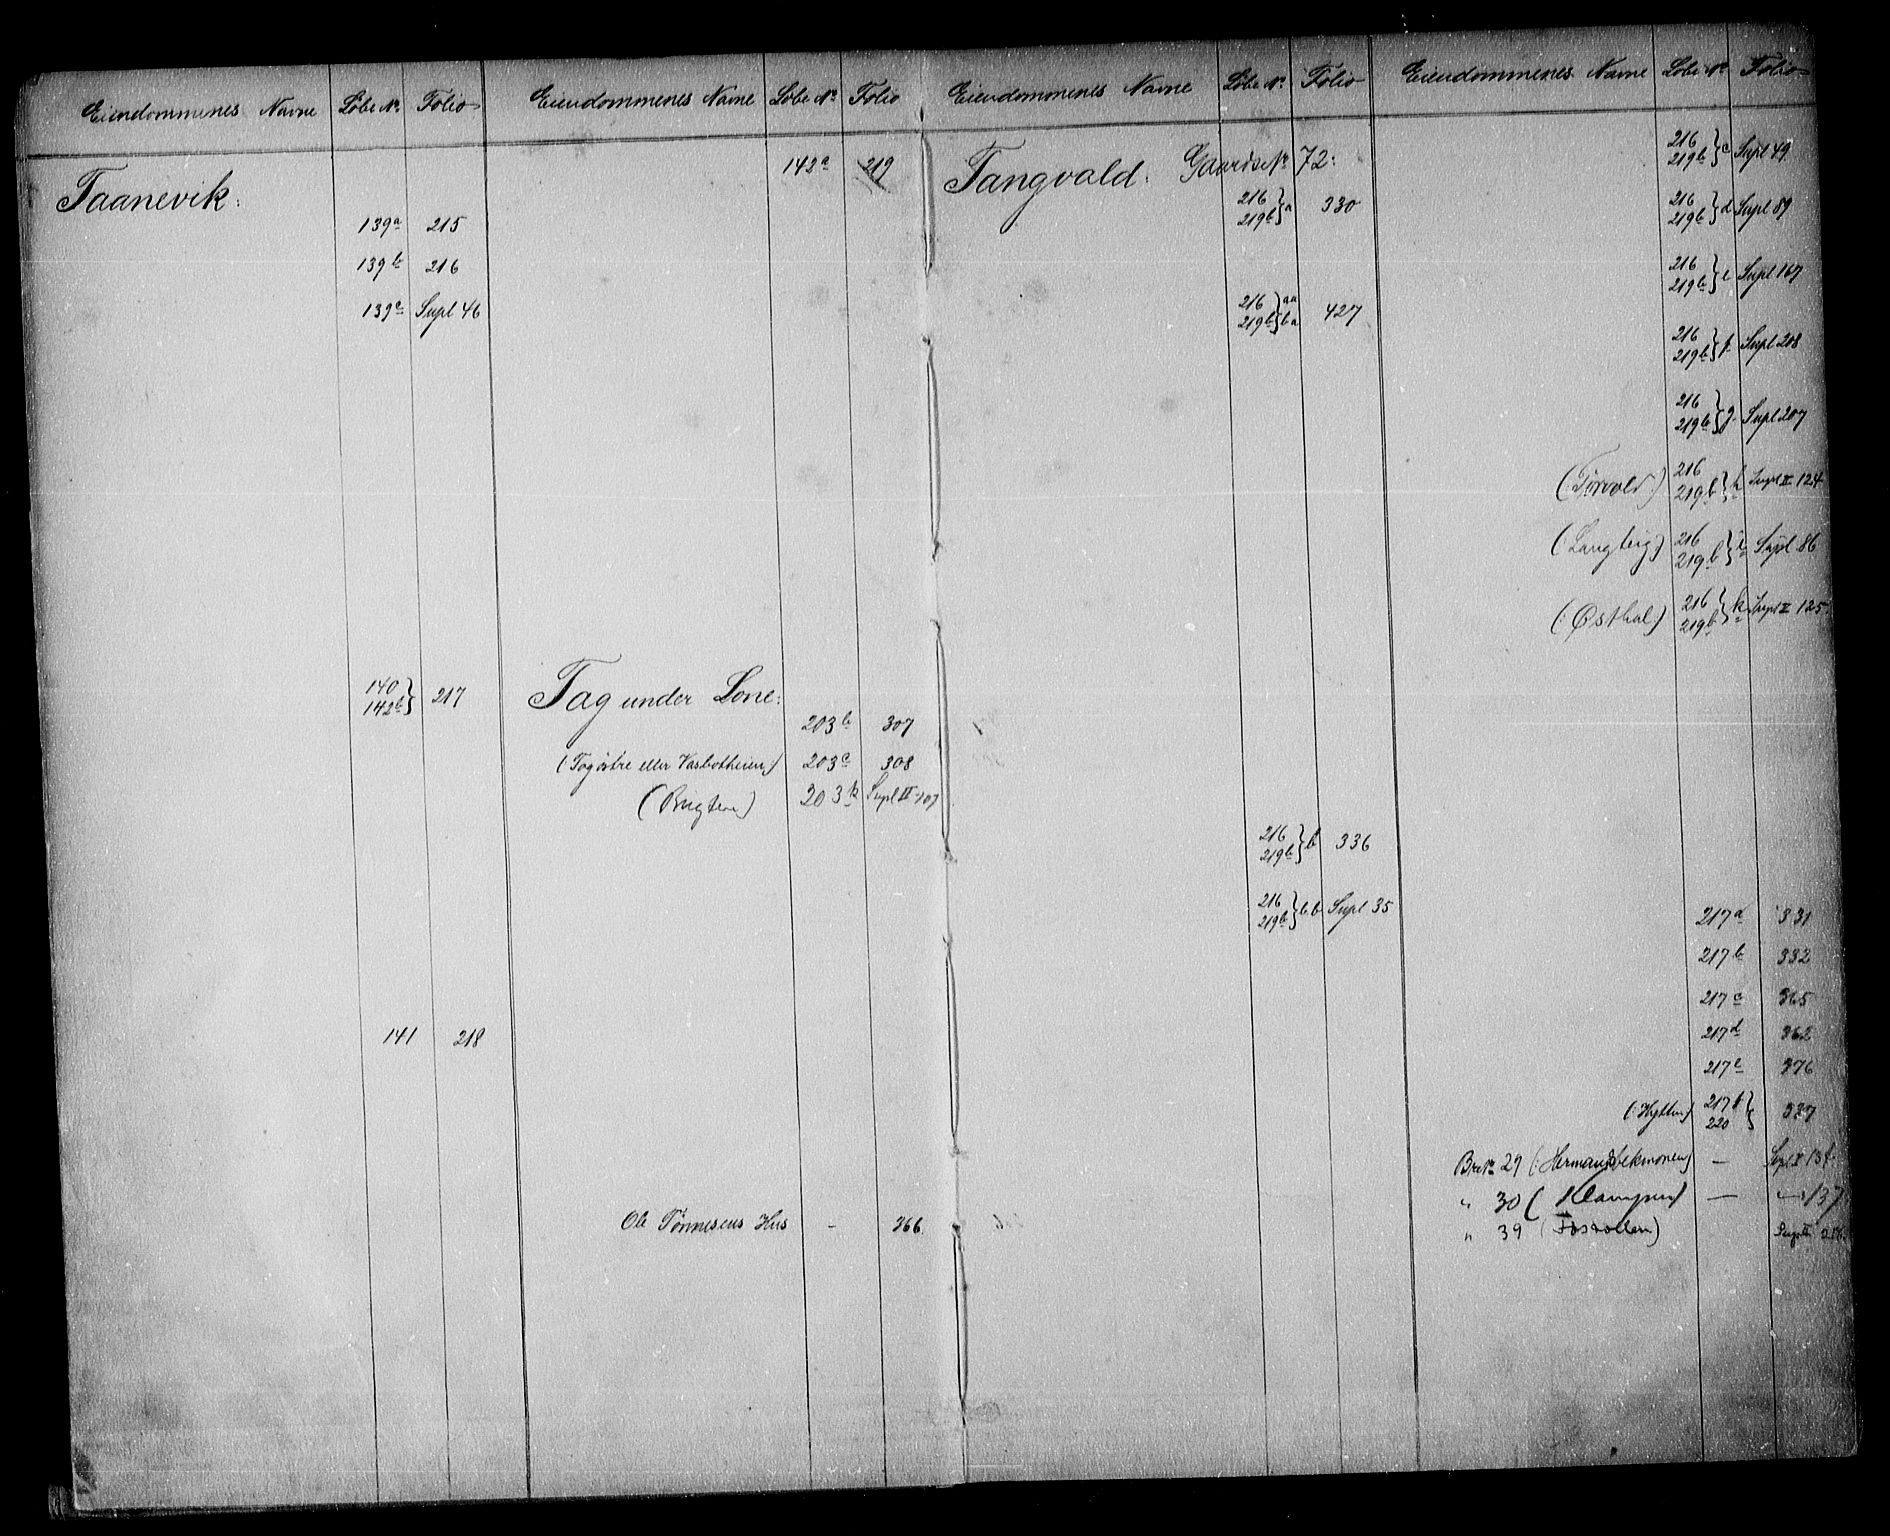 Eiendommenes Navne Løbe No. Folio
Taanevik:
139a 215
139b 216
139c Supl 46
140
142b } 217
141 218
Eiendommenes Navne Løbe No. Folio
142a 219
Tag under Lone:
203b 307
(Tagøstre eller Vasbotheien) 203c 308
203k Supl II 107
Ole Tønnesens Hus - 366
Eiendommenes Navne Løbe No. Folio
Tangvald: Gaards No. 72:
216
219b } a 330
216 } aa
219b } ba 427
216
219b } b 336
216
219b } bb Supl 35
Eiendommenes Navne Løbe No. Folio
216
219b } c Supl 49
216
219b } d Supl 89
216
219b } e Supl 167
216
219b } f Supl 208
216
219b } g Supl 207
(Torvold) 216
219b } h Supl II 124
(Langteig) 216
219b } i Supl 86
(:Østhal:) 216
219b } k Supl II 125
217a 331
217b 332
217c 365
217d 362
217e 376
(:Hytten) 217f
220 } 337
Br No 29 — Supl II
" 30 ( — 137
" 39 ( Supl II